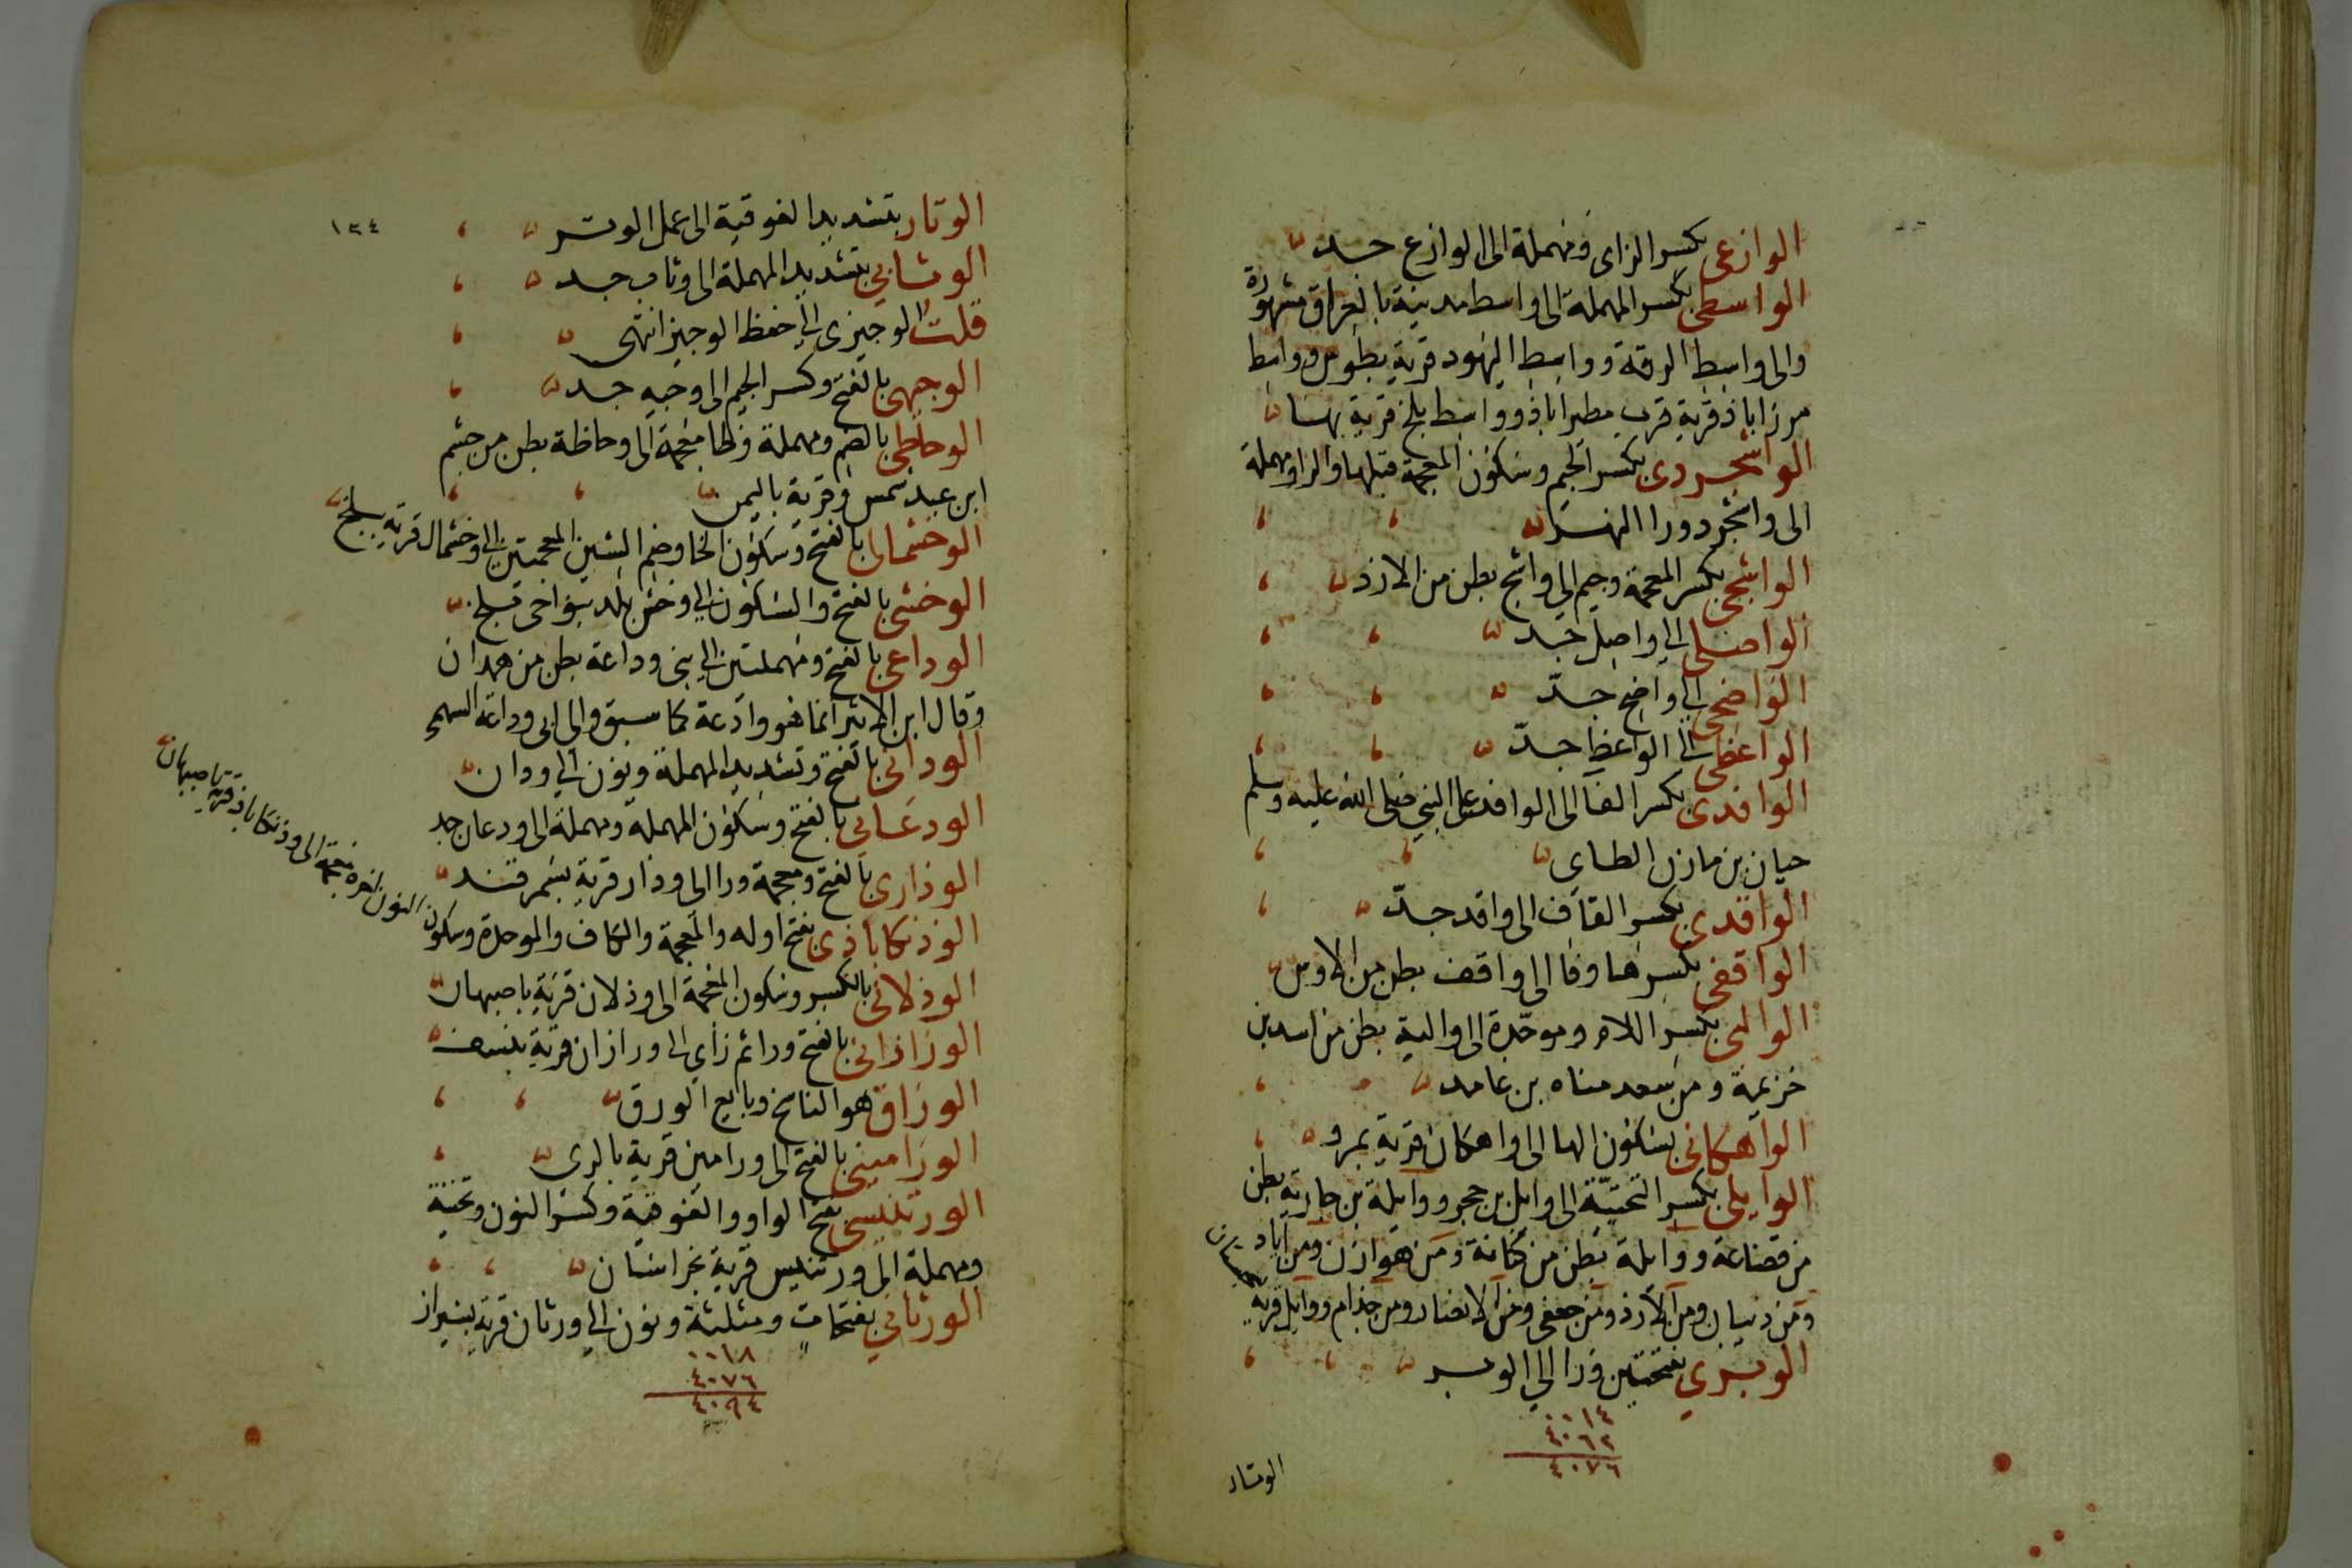 الوازعى بكسر الزاى ومهملة الى الوازع جد
الواسطى بكسر المهملة الى واسط مدينة بالعراق مشهورة
والى واسط الرقة وواسط اليهود قرية بطوس وواسط
مرزاباذ قرية قرب مطيراباذ وواسط بلخ قرية بها
الواشجردى بكسر الجيم وسكون المعجمة قبلها والراومهملة
الى واشجرد ورا النهر
الواشجى بكسر المعجمة وجيم الى واشج بطن من الازد
الواصلى الى واصل جد
الواضحى الى واضح جد
الواعظى الى الواعظ جد
الوافدى بكسر الفا الى الوافد على النبي صلى الله عليه وسلم
حيان بن مازن الطاى
الواقدى بكسر القاف الى واقد جد
الواقفى بكسرها وفا الى واقف بطن من الاوس
الوالبى بكسر اللام وموحدة الى والبة بطن من اسد بن
خزيمة ومن سعد مناه بن غامد
الواهكانى بسكون الها الى واهكان قرية بمرو
الوايلى بكسر التحتية الى وايل بن حجر ووايلة بن جارية بطن
من قضاعة ووايلة بطن من كنانة ومن هوازن ومن اياد
ومن ذبيان ومن الازد ومن جعفى ومن الانصار ومن جذام ووايل قرية
الوبرى بفتحتين ورا الى الوبر
٠٠١٤
٤٠٦٢
٤٠٧٦
الوتار
١٣٤
الوتار بتشديد الفوقية الى عمل الوتر
الوثابي بتشديد المهملة الى وثاب جد
قلت الوجيزى الى حفظ الوجيز انتهى
الوجيهى بالفتح وكسر الجيم الى وجيه جد
الوحاظى بالضم ومهملة وظا معجمة الى وحاظة بطن من جشم
ابن عبد شمس وقرية باليمن
الوخشمانى بالفتح وسكون الخا وضم الشين المعجمتين الى وخشمال قرية ببلخ
الوخشى بالفتح والسكون الى وخش بلد بنواحى بلخ
الوداعى بالفتح ومهملتين الى بنى وداعة بطن من همدان
وقال ابن الاثير انما هو وادعة كما سبق والى ابى وداعة السهمى
الودانى بالفتح وتشديد المهملة ونون الى ودان
الودعانى بالفتح وسكون المهملة ومهملة الى ودعان جد
الوذارى بالفتح ومعجمة ورا الى وذار قرية بسمرقند
الوذنكاباذى بفتح اوله والمعجمة والكاف والموحدة وسكون النون اخره معجمة الى وذنكاباذ قرية باصبهان
الوذلانى بالكسر وسكون المعجمة الى وذلان قرية باصبهان
الورازانى بالفتح ورا ثم زاى الى ورازان قرية بنسف
الوراق هو الناسخ وبايع الورق
الورامينى بالفتح الى ورامين قرية بالرى
الورتنيسى بفتح الواو والفوقية وكسر النون وتحتية
ومهملة الى ورتنيس قرية بخراسان
الورثانى بفتحات ومثلثة ونون الى ورثان قرية بشيراز
٠٠١٨
٤٠٧٦
٤٠٩٤